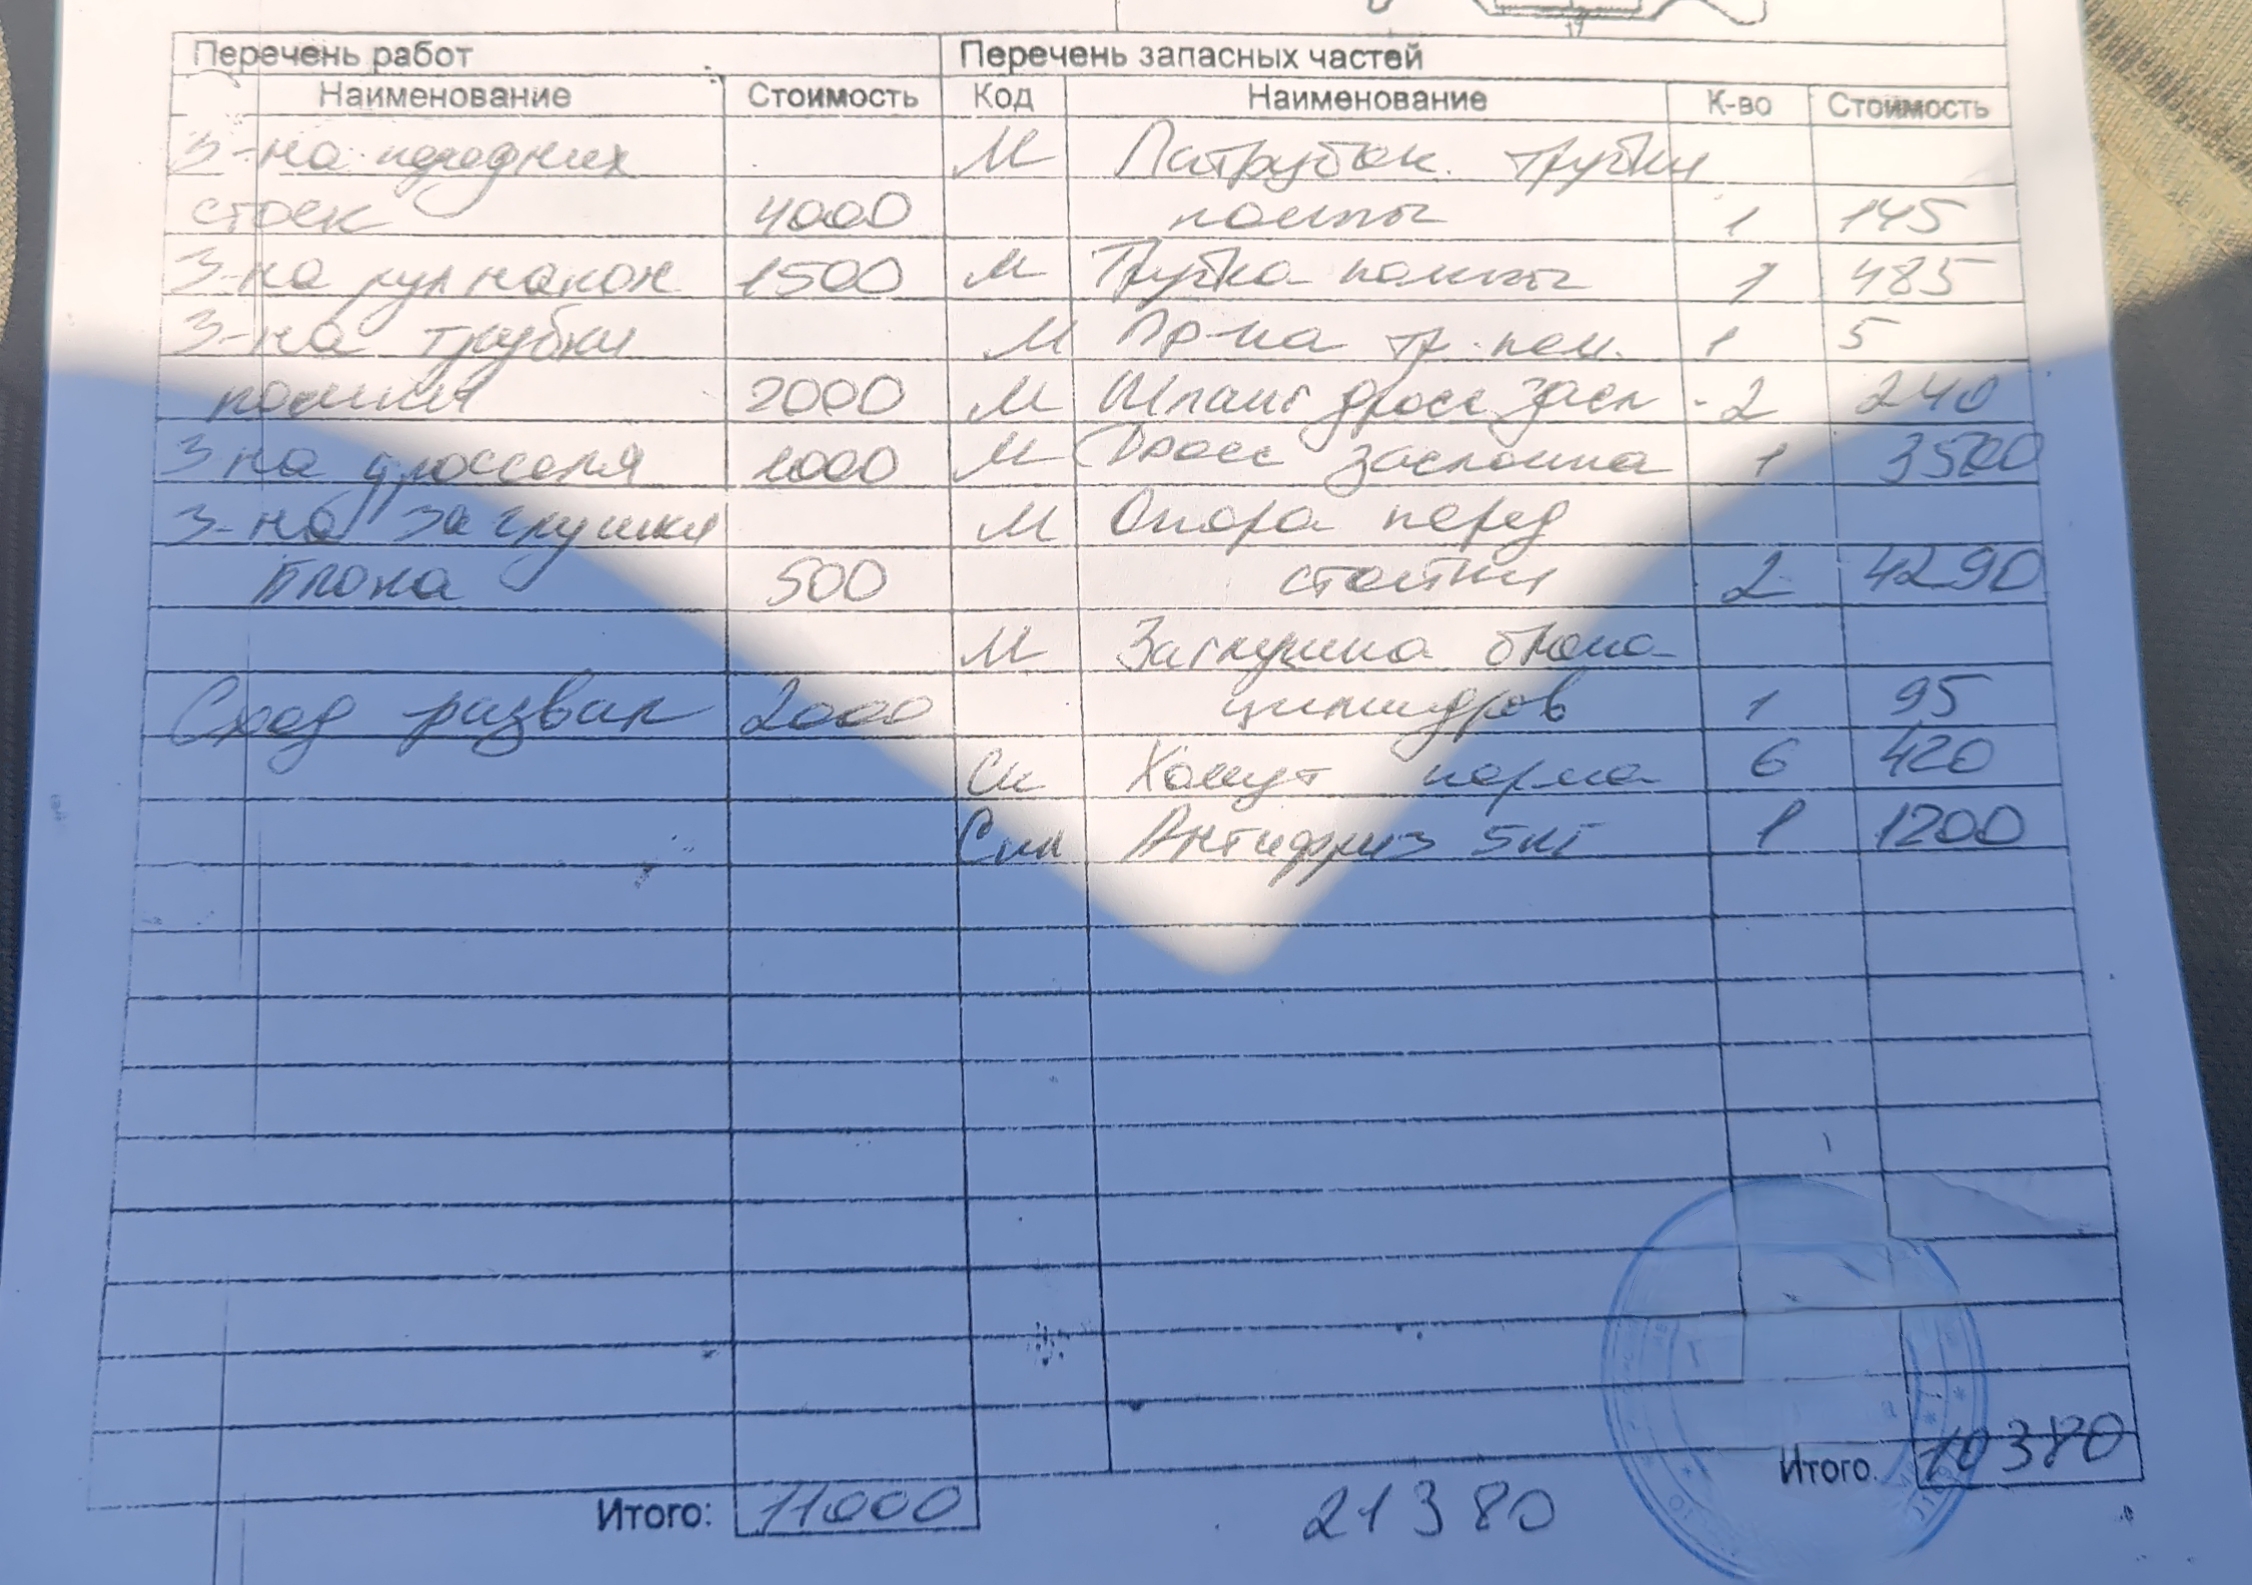 Перечень работ Перечень запасных частей
Наименование Стоимость Код Наименование К-во Стоимость
З-на передних М Патрубок трубки
стоек 4000 помпы 1 145
З-на рул након 1500 М Трубка помпы 1 485
З-на трубки М Пр-ка тр. пом. 1 5
помпы 2000 М Шланг дросс засл - 2 240
З на дросселя 1000 М Дросс заслонка 1 3500
З-на заглушки М Опора перед
блока 500 стойки 2 4290
М Заглушка блока
Сход развал 2000 цилиндров 1 95
Си Хомут норма 6 420
Син Антифриз 5кг 1 1200
Итого. 10380
Итого: 11000 21380